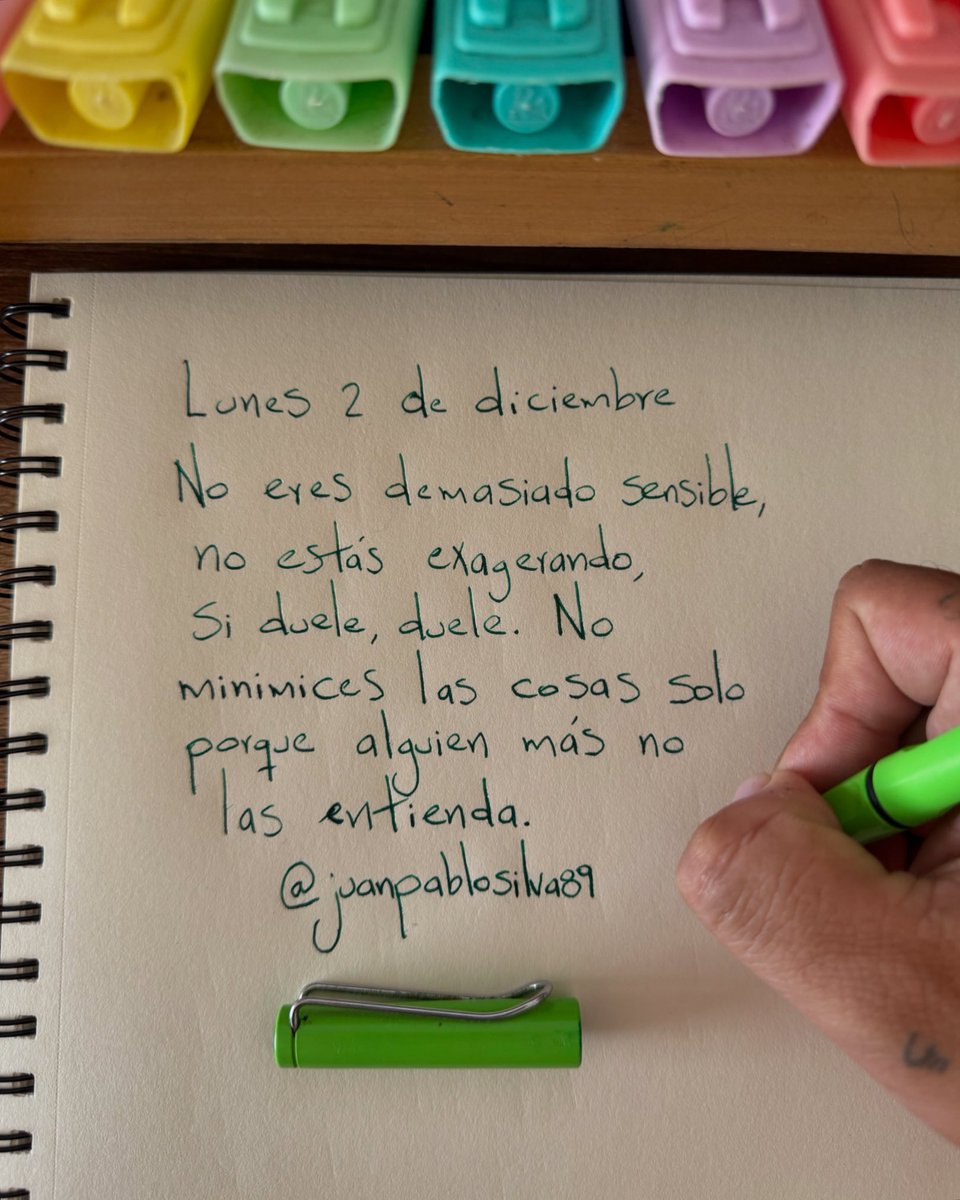 Lunes 2 de diciembre
No eres demasiado sensible,
no estás exagerando,
Si duele, duele. No
minimices las cosas solo
porque alguien más no
las entienda.
@juanpablosilva89